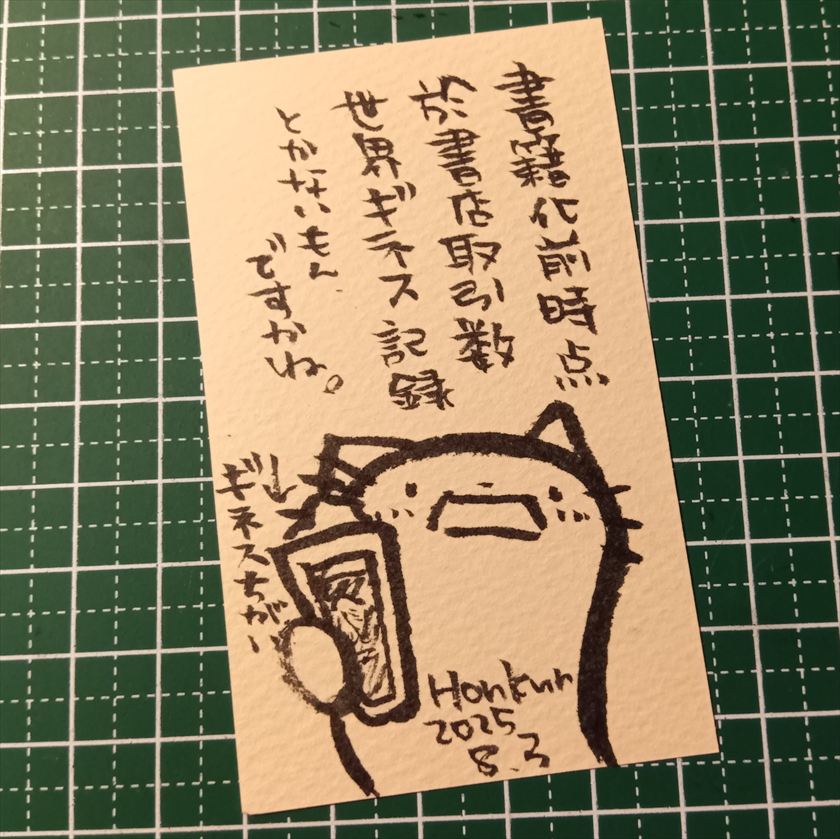 書籍化前時点
於書店取引数
世界ギネス記録
とかないもん
ですかね。
ギネスちがい
Honkun
2025
8.3